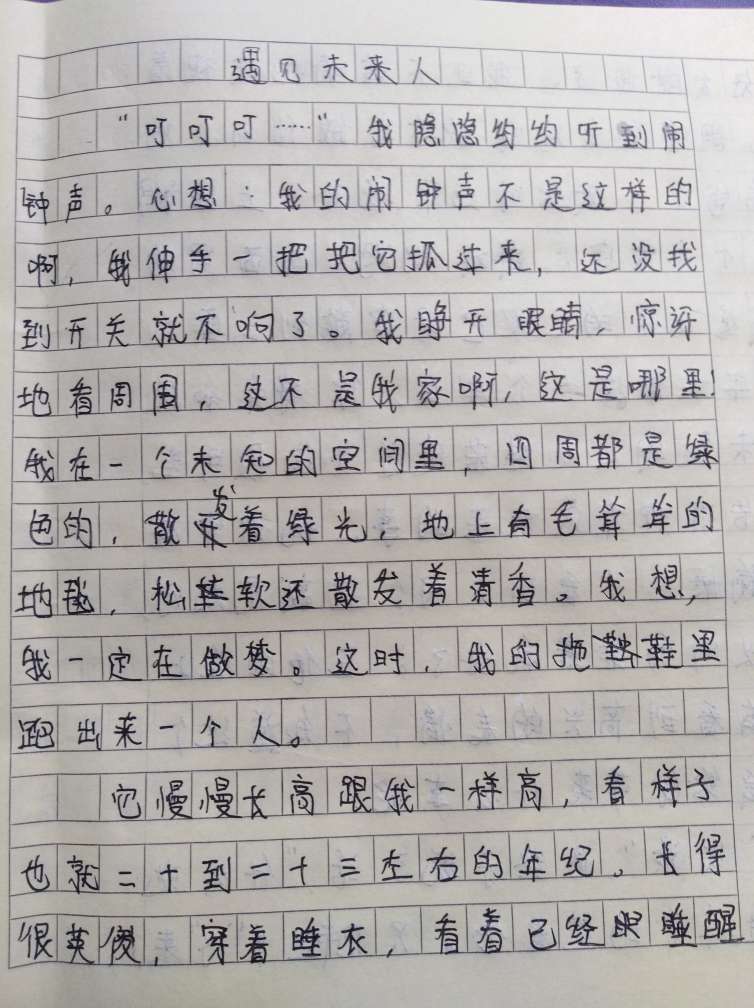 遇见未来人
“叮叮叮……”我隐隐约约听到闹
钟声。心想：我的闹钟声不是这样的
啊，我伸手一把把它抓过来，还没找
到开关就不响了。我睁开眼睛，惊讶
地看周围，这不是我家啊，这是哪里！
我在一个未知的空间里，四周都是绿
色的，散发着绿光，地上有毛茸茸的
地毯，松软还散发着清香。我想，
我一定在做梦。这时，我的拖鞋里
跑出来一个人。
它慢慢长高跟我一样高，看样子
也就二十到二十三左右的年纪。长得
很英俊，穿着睡衣，看着已经睡醒